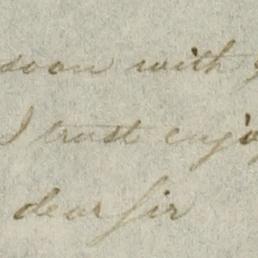 soon with
I trust enjoy
dear Sir